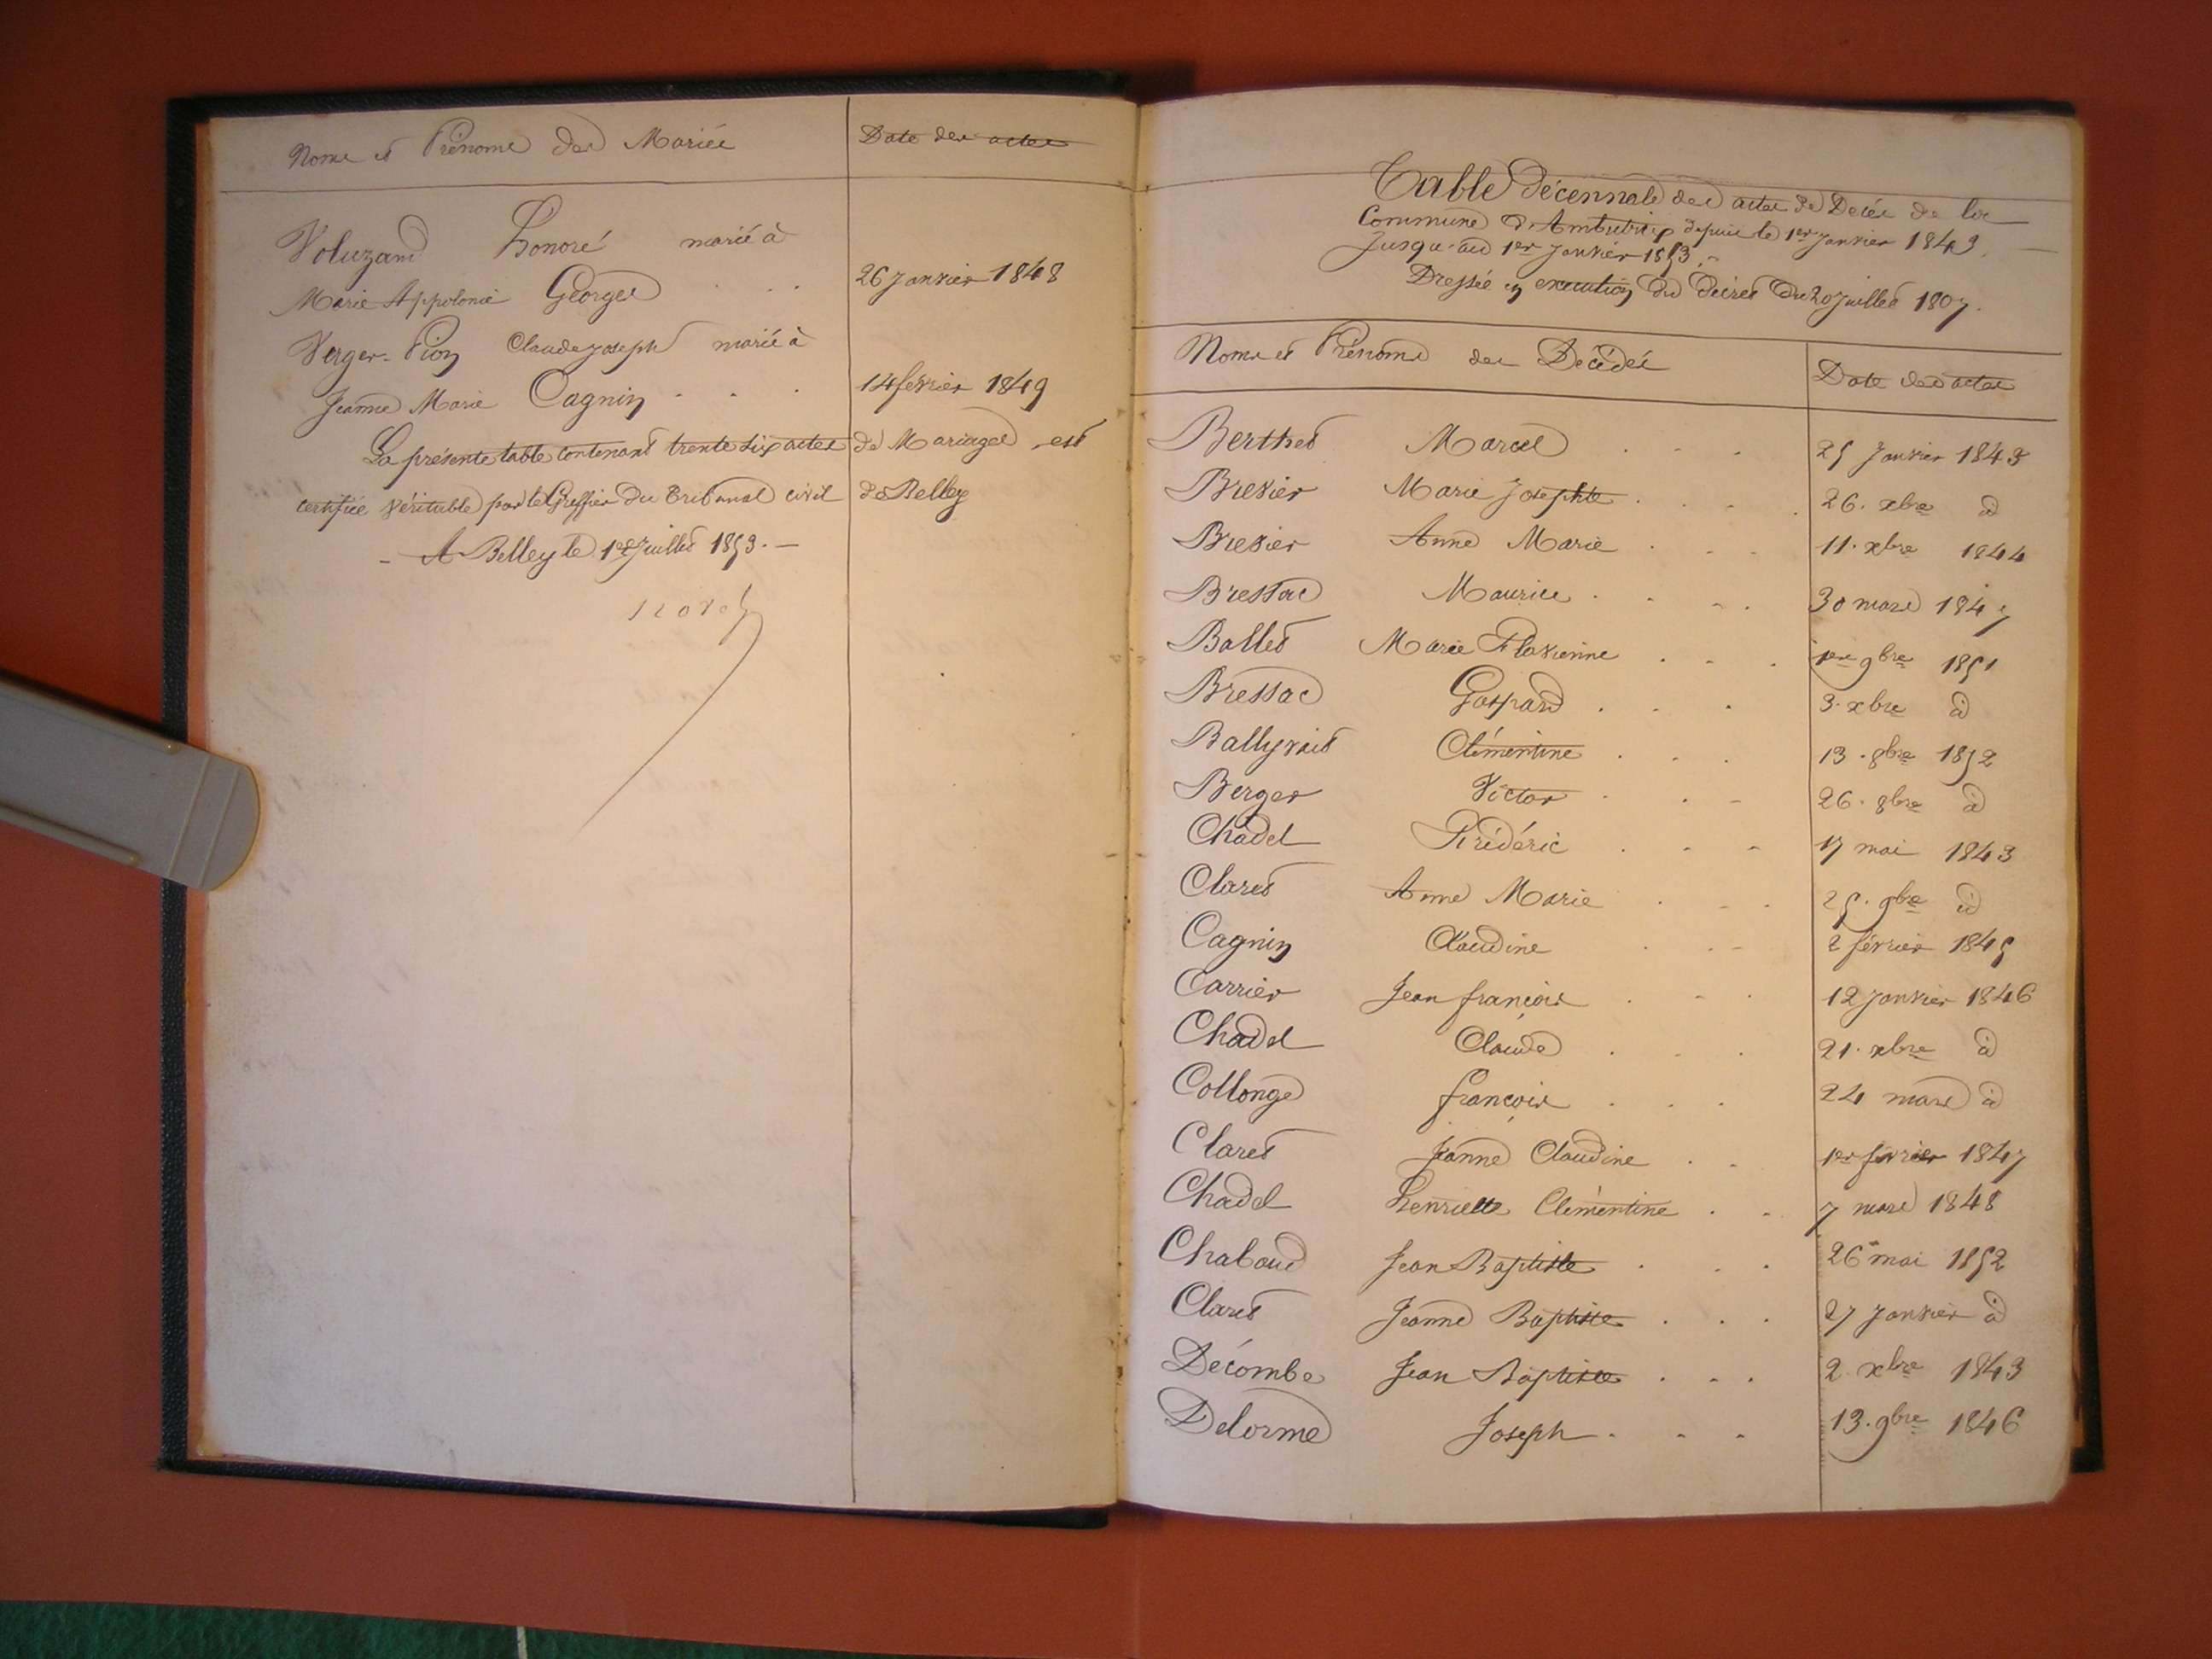 Noms et Prénoms des Mariés
Date des actes
Voluzand Honoré marié à
Marie Appolonie Georges . . . 26 Janvier 1848
Verger-Pion Claude Joseph marié à
Jeanne Marie Cagnin . . . 14 février 1849
La présente table contenant trente six actes de Mariages est
certifiée véritable par le Greffier du Tribunal civil de Belley
- A Belley le 1er Juillet 1853. -
Table décennale des actes de Décès de la
Commune d'Ambutrix depuis le 1er Janvier 1843
Jusqu'au 1er Janvier 1853. -
Dressée en execution du décret du 20 Juillet 1807.
Noms et Prénoms des Décédés
Date des actes
Berthet Marcel . . . 25 Janvier 1843
Brevier Marie Josephte . . . 26. xbre d
Brevier Anne Marie . . . 11. xbre 1844
Bressac Maurice . . . 30 mars 1847
Ballet Marie Flavienne . . . 1er 9bre 1851
Bressac Gaspard . . . 3. xbre d
Ballyvait Clémentine . . . 13. 8bre 1852
Berger Victor . . . 26. 8bre d
Chadel Frédéric . . . 17 mai 1843
Claret Anne Marie . . . 25. 9bre d
Cagnin Claudine . . . 2 février 1845
Carrier Jean françois . . . 12 Janvier 1846
Chadel Claude . . . 21. xbre d
Collonge françois . . . 24 mars d
Claret Jeanne Claudine . . 1er février 1847
Chadel henriette Clémentine . . 7 mars 1848
Chaboud Jean Baptiste . . . 26 mai 1852
Claret Jeanne Baptiste . . . 27 Janvier d
Décombe Jean Baptiste . . . 2. xbre 1843
Delorme Joseph . . . 13. 9bre 1846